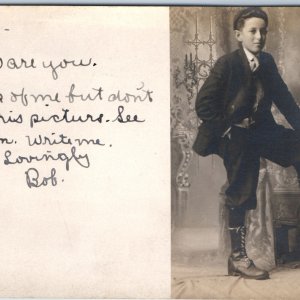 are you.
of me but don't
this picture. See
Write me.
Lovingly
Bob.